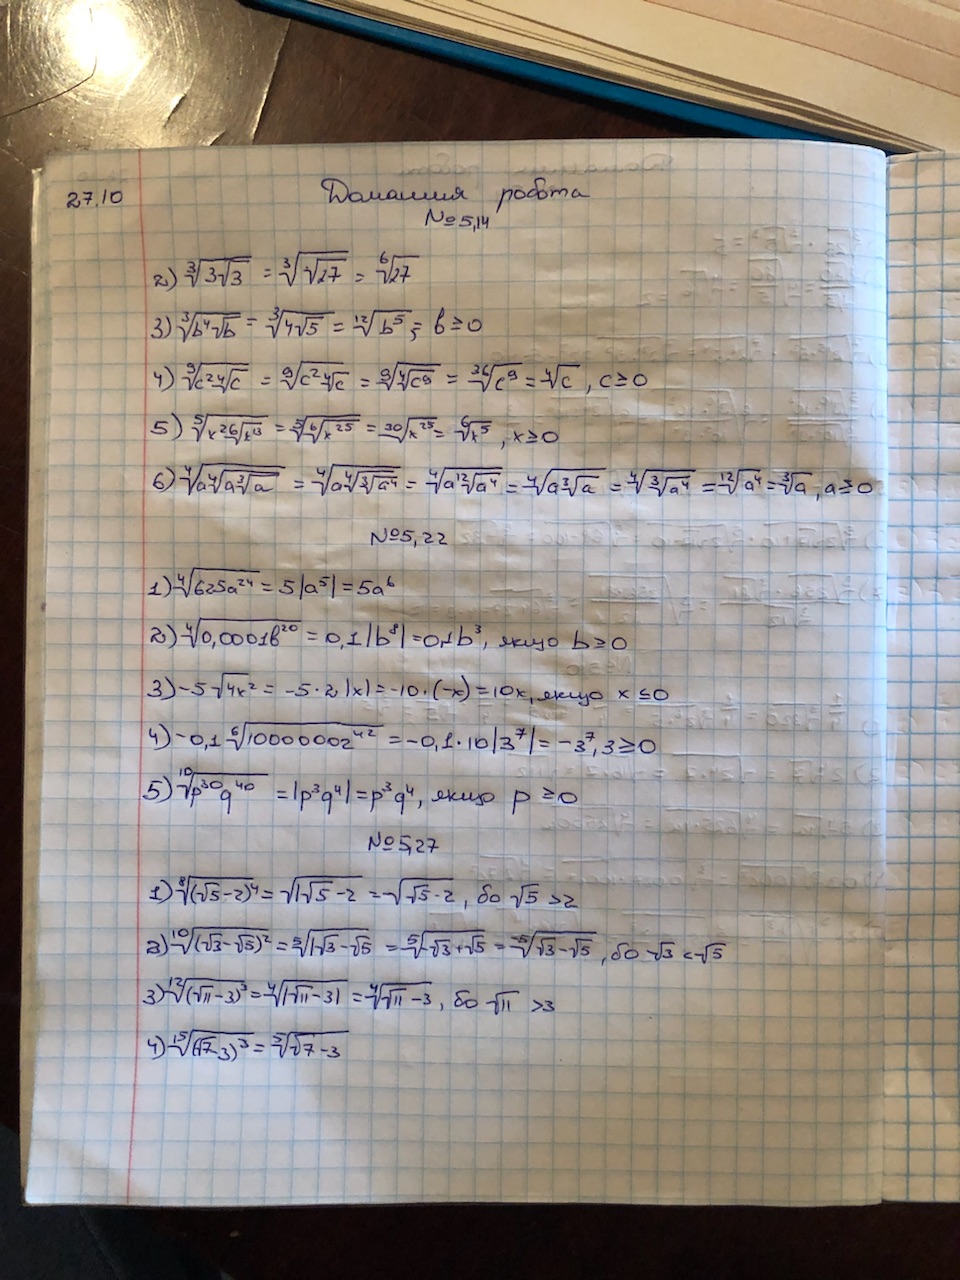 27.10 Домашня робота
№5,14
2) ∛(3√3) = ∛(√27) = ⁶√27
3) ∛(b⁴√b) = ∛(4√5) = ¹²√(b⁵); b ≥ 0
4) ⁹√(c² ⁴√c) = ⁹√(c² ⁴√c) = ⁹√(⁴√(c⁹)) = ³⁶√(c⁹) = ⁴√c, c ≥ 0
5) ⁵√(x² ⁶√(x¹³)) = ⁵√(⁶√(x²⁵)) = ³⁰√(x²⁵) = ⁶√(x⁵), x ≥ 0
6) ⁴√(a ⁴√(a ∛a)) = ⁴√(a ⁴√(∛(a⁴))) = ⁴√(a ¹²√(a⁴)) = ⁴√(a ∛a) = ⁴√(∛(a⁴)) = ¹²√(a⁴) = ∛a, a ≥ 0
№5,22
1) ⁴√(625a²⁴) = 5|a⁵| = 5a⁶
2) ⁴√(0,0001b²⁰) = 0,1|b⁸| = 0,1b³, якщо b ≥ 0
3) -5√(4x²) = -5·2|x| = -10·(-x) = 10x, якщо x ≤ 0
4) -0,1 ⁶√(1000000z⁴²) = -0,1·10|3⁷| = -3⁷, 3 ≥ 0
5) ¹⁰√(p³⁰q⁴⁰) = |p³q⁴| = p³q⁴, якщо p ≥ 0
№5,27
1) ⁸√((√5-2)⁴) = √(|√5-2) = √(√5-2), бо √5 > 2
2) ¹⁰√((√3-√5)²) = ⁵√(|√3-√5) = ⁵√(-√3+√5) = -⁵√(√3-√5), бо √3 < √5
3) ¹²√((√11-3)³) = ⁴√(|√11-3|) = ⁴√(√11-3), бо √11 > 3
4) ¹⁵√((√7-3)³) = ⁵√(√7-3)